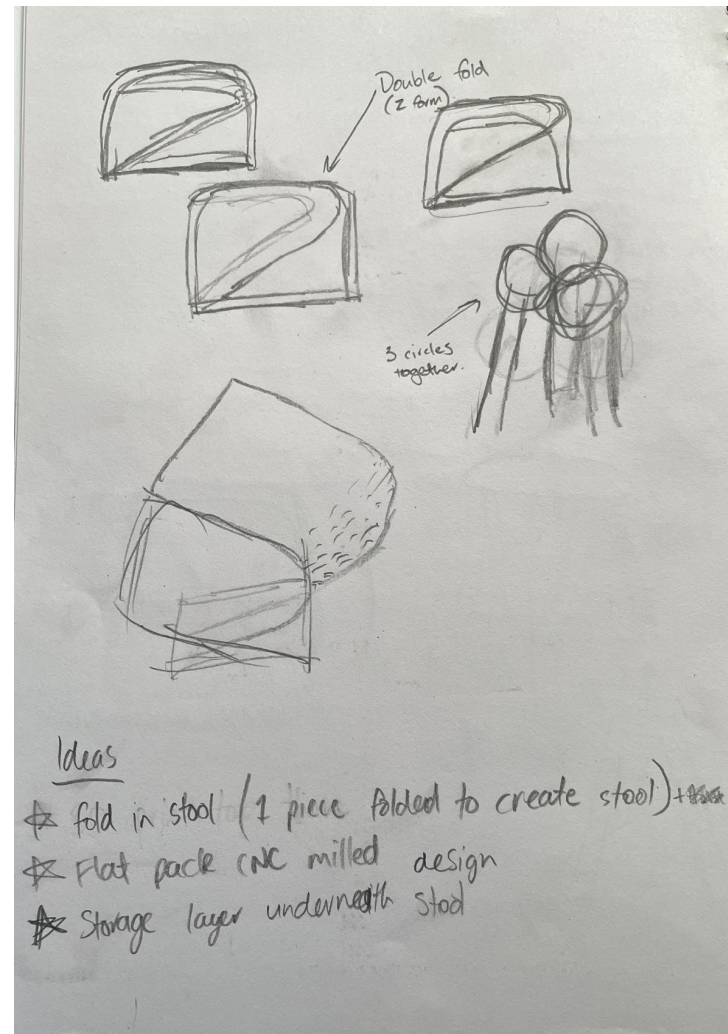 Double fold
(Z form)
3 circles
together.
Ideas
fold in stool (1 piece folded to create stool) +
Flat pack CNC milled design
Storage layer underneath stool